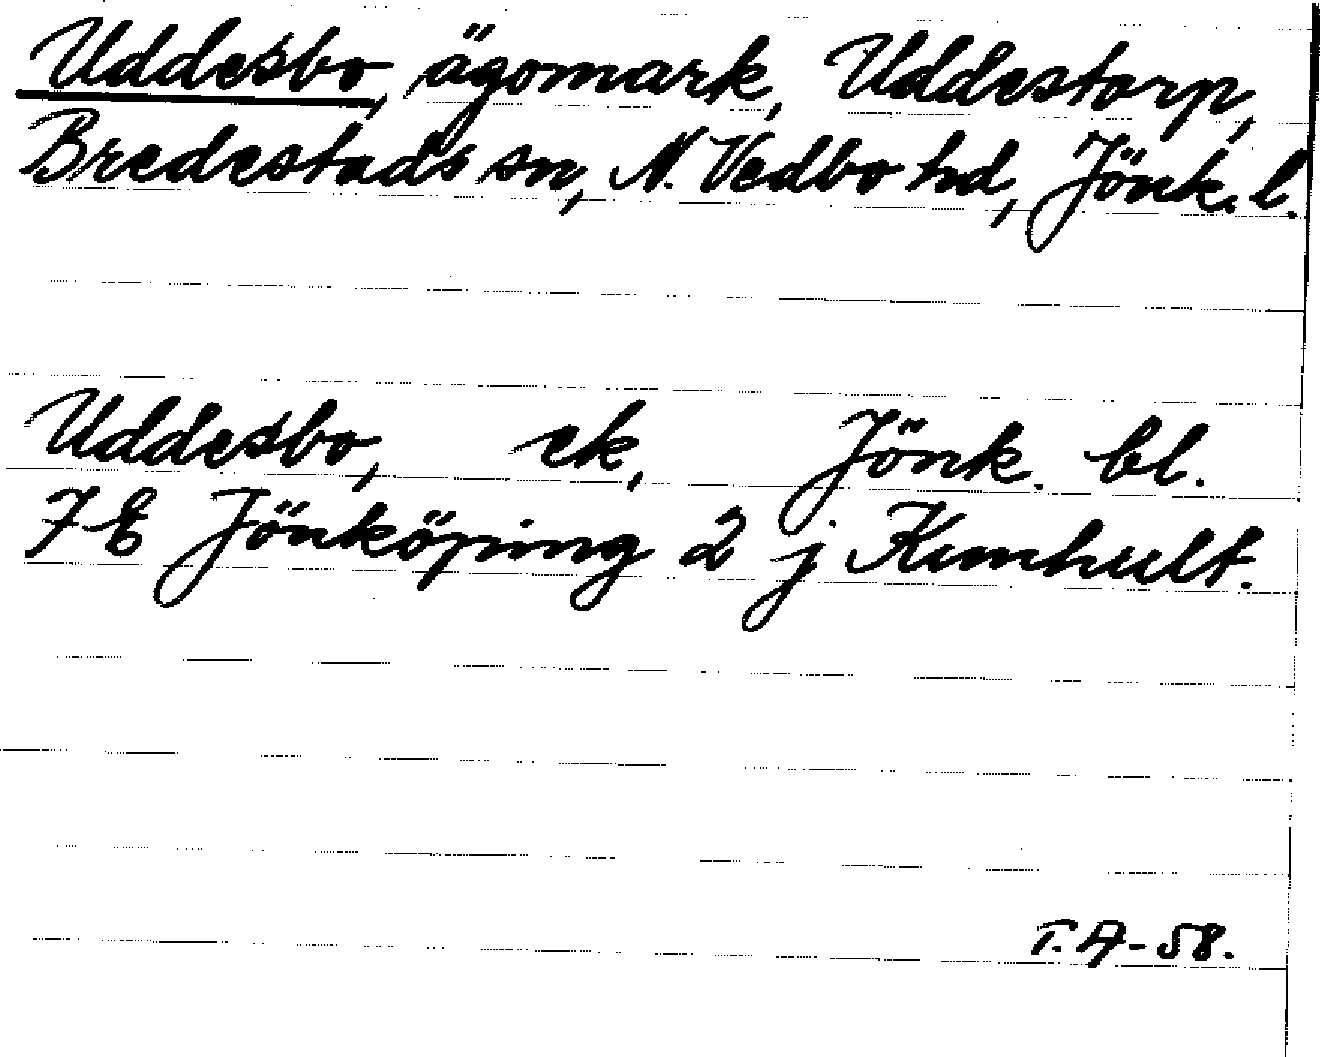 Uddesbo, ägomark, Uddestorp,
Bredestads sn, N. Vedbo hd, Jönk. l.
Uddesbo, ek, Jönk. bl.
7 E Jönköping 2 j Kumhult.
T.A-58.